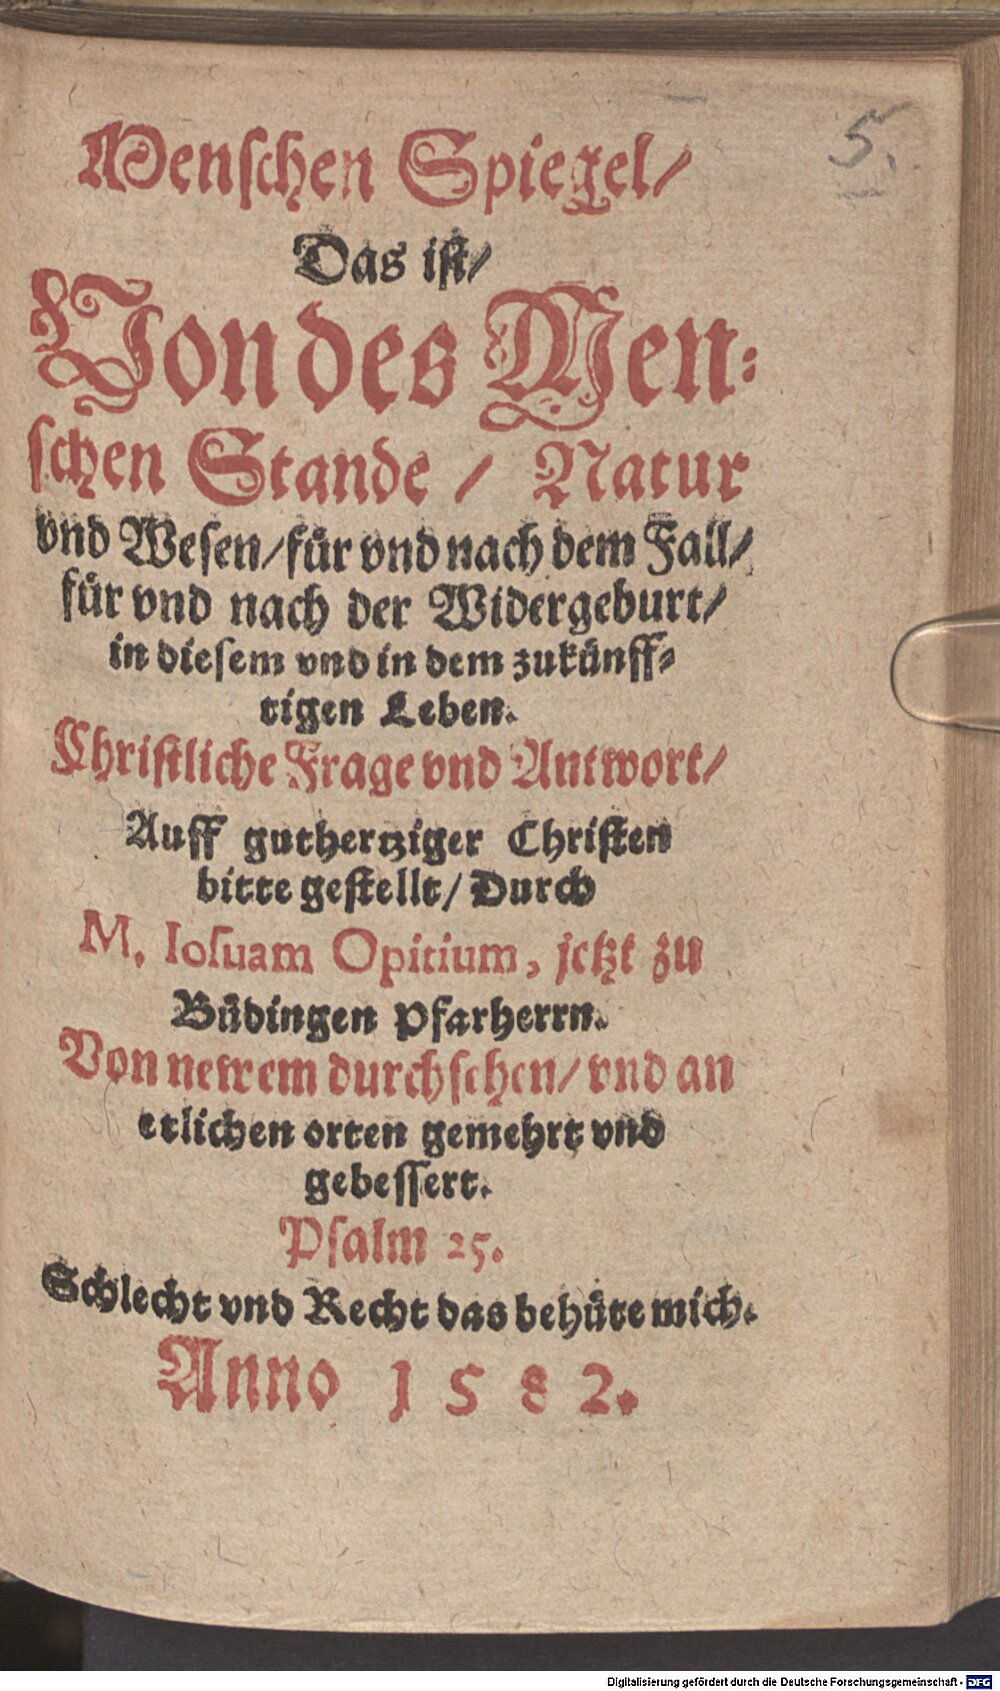 Menschen Spiegel/
5.
Das ist/
Von des Men-
schen Stande / Natur
vnd Wesen/für vnd nach dem Fall/
für vnd nach der Widergeburt/
in diesem vnd in dem zukünff-
tigen Leben.
Christliche Frage vnd Antwort/
Auff guthertziger Christen
bitte gestellt/ Durch
M. Iosuam Opitium, jetzt zu
Büdingen Pfarherrn.
Von newem durchsehen/ vnd an
etlichen orten gemehrt vnd
gebessert.
Psalm 25.
Schlecht vnd Recht das behüte mich.
Anno 1582.
Digitalisierung gefördert durch die Deutsche Forschungsgemeinschaft - DFG